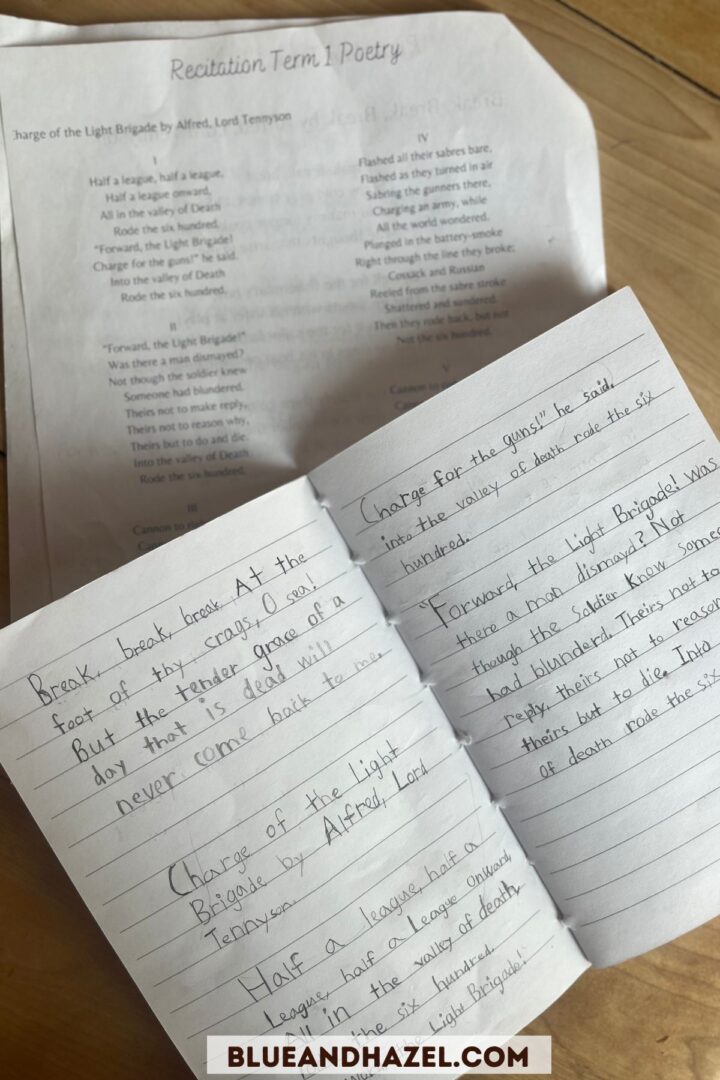 Recitation Term 1 Poetry
harge of the Light Brigade by Alfred, Lord Tennyson
I
Half a league, half a league,
Half a league onward,
All in the valley of Death
Rode the six hundred.
"Forward, the Light Brigade!
Charge for the guns!" he said.
Into the valley of Death
Rode the six hundred.
II
"Forward, the Light Brigade!"
Was there a man dismayed?
Not though the soldier knew
Someone had blundered.
Theirs not to make reply,
Theirs not to reason why,
Theirs but to do and die.
Into the valley of Death
Rode the six hundred.
III
Cannon to
IV
Flashed all their sabres bare,
Flashed as they turned in air
Sabring the gunners there,
Charging an army, while
All the world wondered.
Plunged in the battery-smoke
Right through the line they broke;
Cossack and Russian
Reeled from the sabre stroke
Shattered and sundered.
Then they rode back, but not
Not the six hundred.
V
Cannon to
Break, break, break, At the
foot of thy crags, O sea!
But the tender grace of a
day that is dead will
never come back to me.
Charge of the Light
Brigade by Alfred, Lord
Tennyson
Half a league, half a
league, half a League onward,
All in the valley of death
the six hundred.
the Light Brigade!
Charge for the guns!" he said.
into the valley of death rode the six
hundred.
"Forward, the Light Brigade! was
there a man dismayd? Not
though the Soldier Know some
had blunderd. Theirs not to
reply, theirs not to reason
theirs but to die. Into
of death rode the six
BLUEANDHAZEL.COM